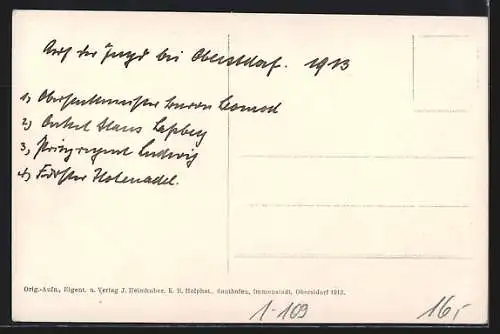 Auf der Jagd bei Oberstdorf. 1913
1, Oberstallmeister Baron Leonrod
2, Onkel Hans
3, Prinzregent Ludwig
4, Förster Hohenadel.
Orig.-Aufn., Eigent. u. Verlag J. Heimhuber, K. B. Hofphot., Sonthofen, Immenstadt, Oberstdorf 1912.
1-109
165,